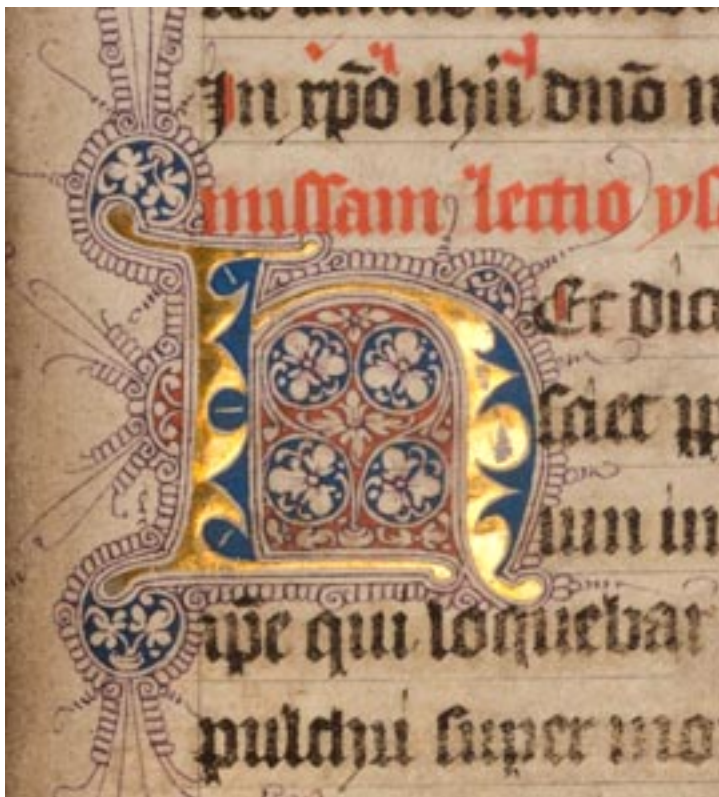 In xp̄o ihū dn̄o n
missam lectio ys
h Ec dic
sciet pp
um in
ip̄e qui loquebar
pulchri super mo